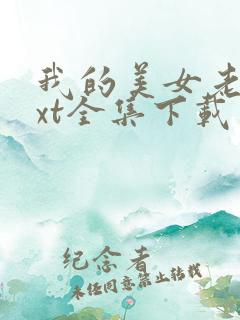 我的美女老
xt全集下载
纪念者
未经同意禁止转载